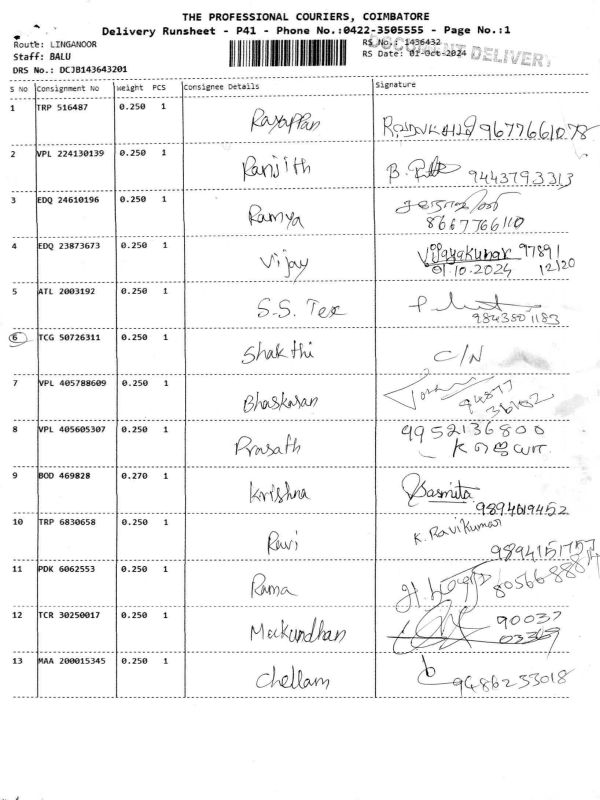 THE PROFESSIONAL COURIERS, COIMBATORE
Delivery Runsheet - P41 - Phone No.:0422-3505555 - Page No.:1
Route: LINGANOOR
RS No.: 1436432
DOCUMENT DELIVERY
Staff: BALU
RS Date: 01-Oct-2024
DRS No.: DCJB143643201
S No Consignment No Weight PCS Consignee Details Signature
1 TRP 516487 0.250 1 Rayappan 9677661078
2 VPL 224130139 0.250 1 Ranjith B. 9443793313
3 EDQ 24610196 0.250 1 Ramya
8667766110
4 EDQ 23873673 0.250 1 Vijay Vijayakumar 97891
01.10.2024 12120
5 ATL 2003192 0.250 1 S.S. Tex
9843801183
6 TCG 50726311 0.250 1 Shakthi C/N
7 VPL 405788609 0.250 1 Bhaskaran 94877
36102
8 VPL 405605307 0.250 1 Prasath 9952136800
9 BOD 469828 0.270 1 Krishna Sasmita
9894019452
10 TRP 6830658 0.250 1 Ravi K. Ravikumar
9894151757
11 PDK 6062553 0.250 1 Rama
12 TCR 30250017 0.250 1 90037
03369
13 MAA 200015345 0.250 1 Chellam
9486233018